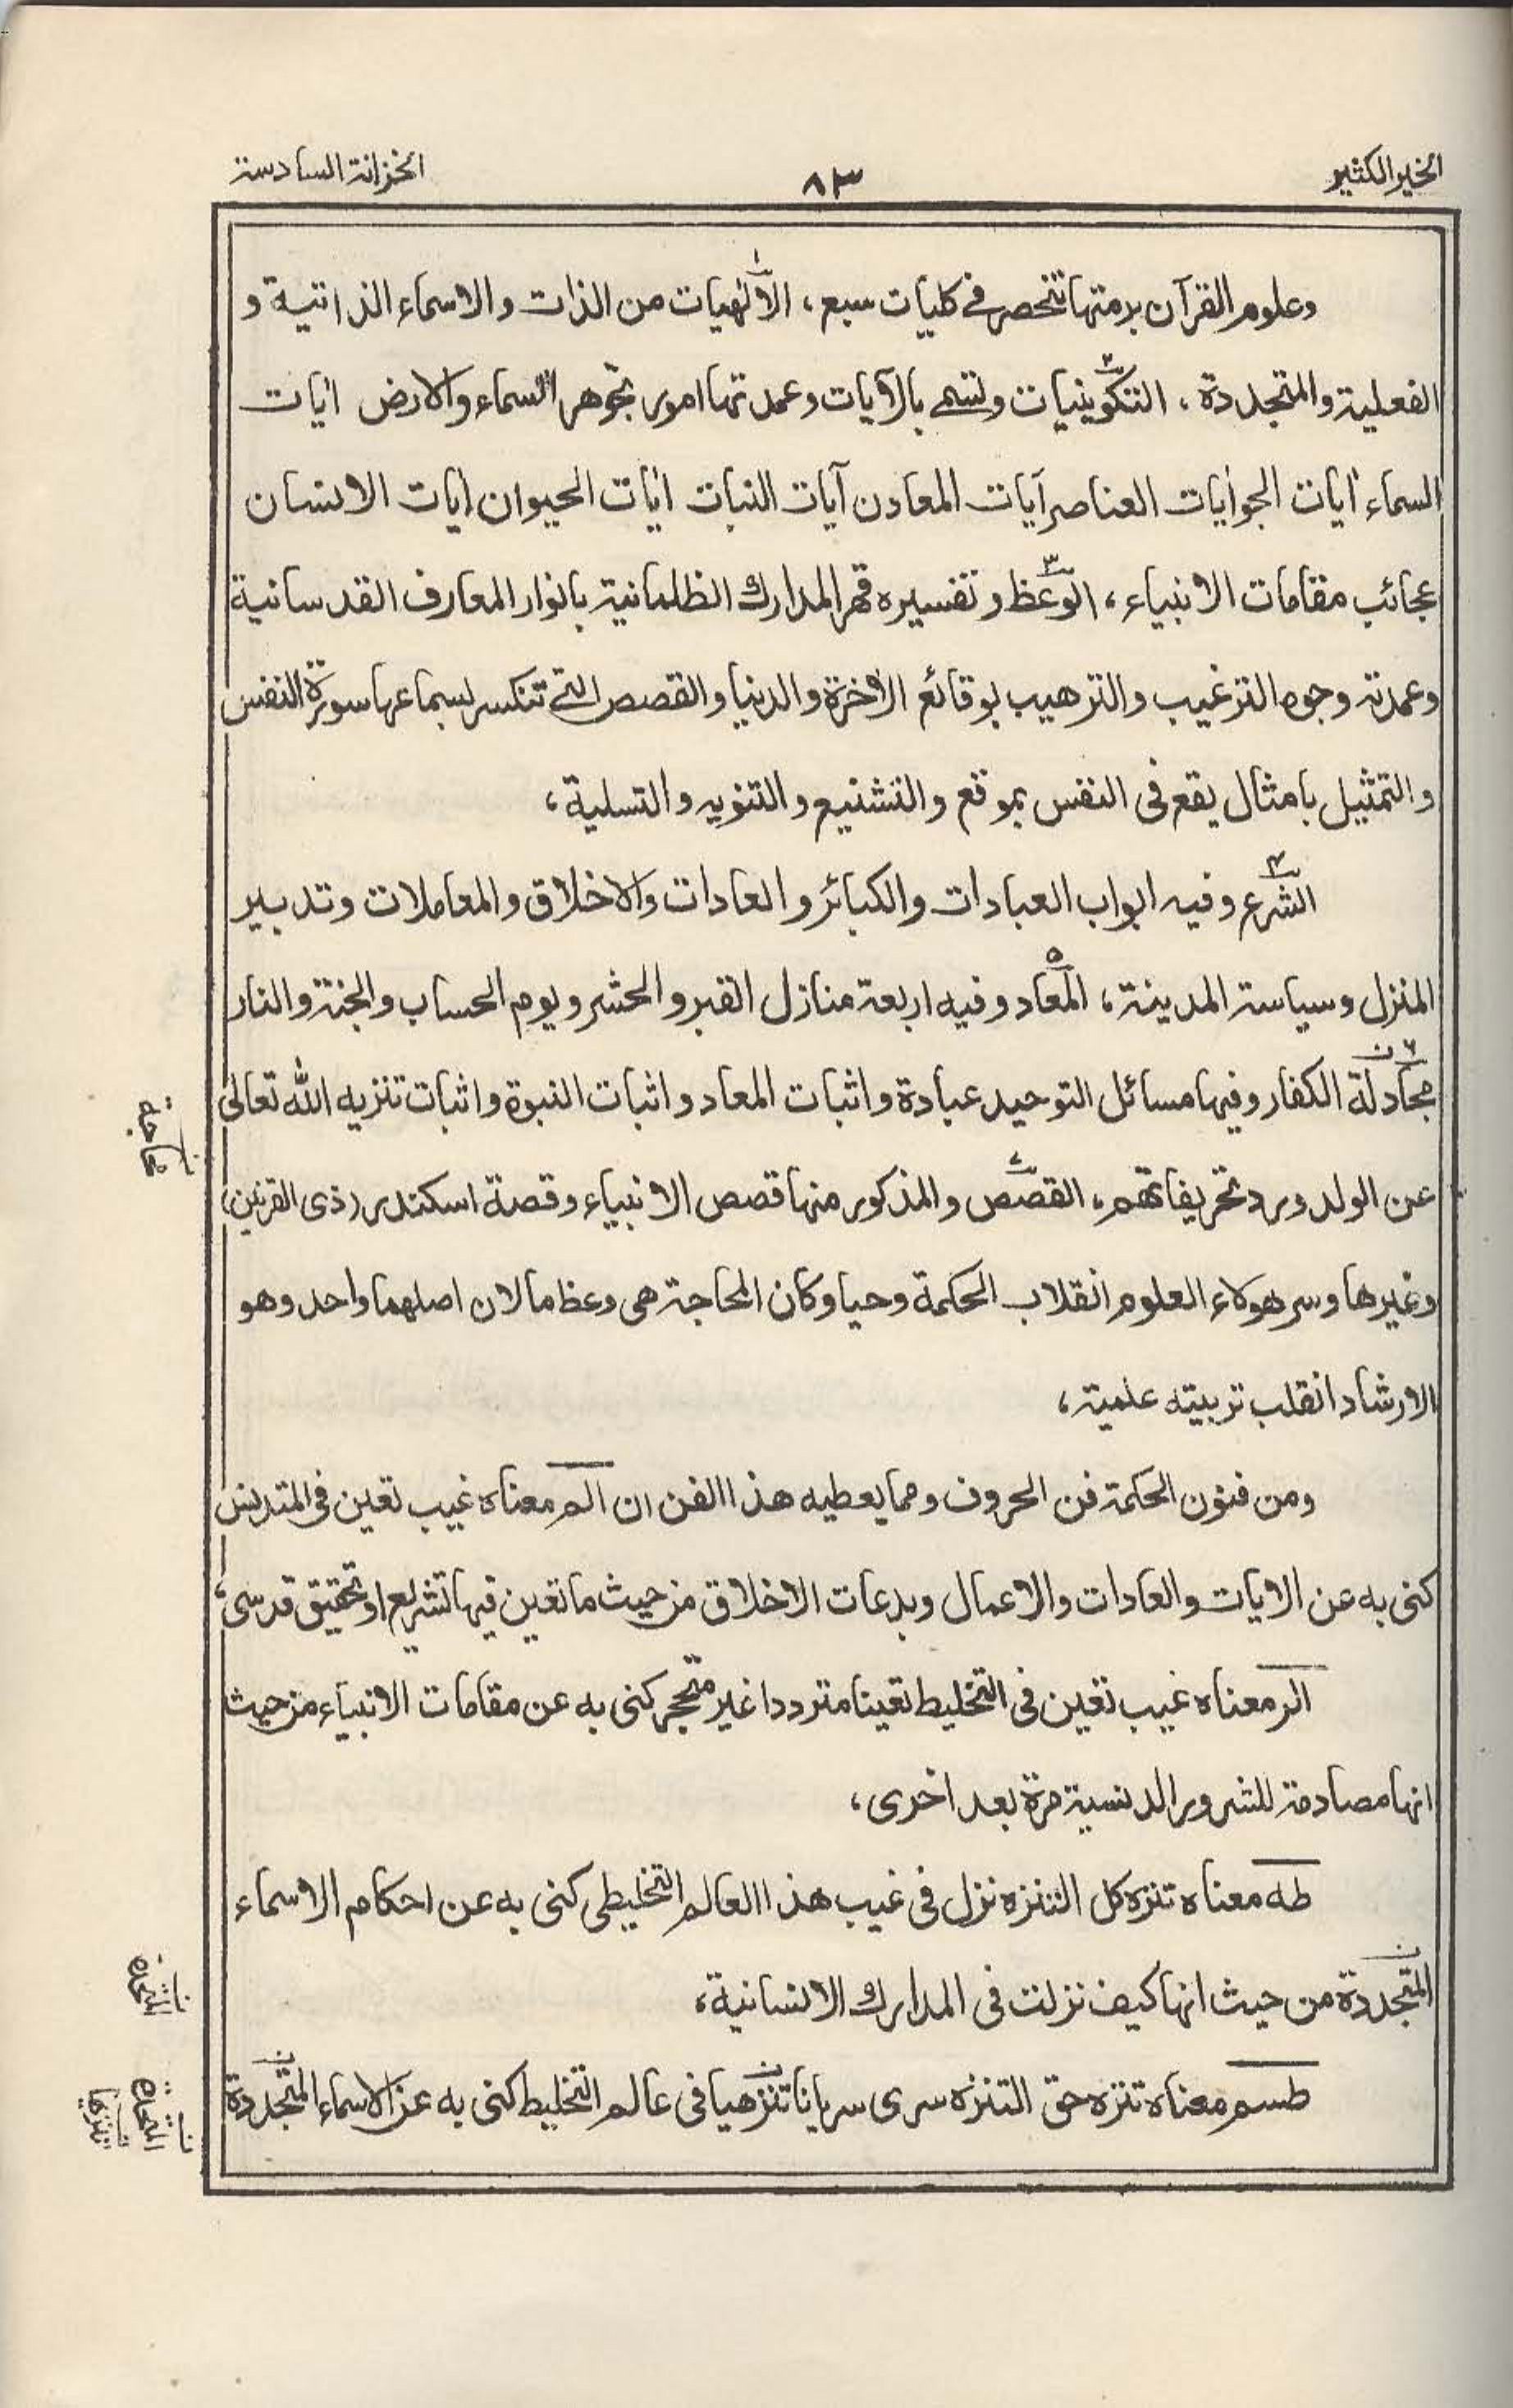 الخير الكثير
٨٣
الخزانة السادسة
وعلوم القرآن برمتها تنحصر في كليات سبع، الالٰهيات من الذات والاسماء الذاتية و
الفعلية والمتجددة، التكوينيات وتسمى بالآيات وعمدتها امور تجوهر السماء والارض اٰيات
السماء اٰيات الجو اٰيات العناصر آيات المعادن آيات النبات اٰيات الحيوان اٰيات الانسان
عجائب مقامات الانبياء، الوعظ وتفسيره قهر المدارك الظلمانية بانوار المعارف القدسانية
وعمدته وجوه الترغيب والترهيب بوقائع الاٰخرة والدنيا والقصص التي تنكسر لسماعها سورة النفس
والتمثيل بامثال يقع في النفس بموقع والتشنيع والتنويه والتسلية،
الشرع وفيه ابواب العبادات والكبائر والعادات والاخلاق والمعاملات وتدبير
المنزل وسياسة المدينة، المعاد وفيه اربعة منازل القبر والحشر ويوم الحساب والجنة والنار
مجادلة الكفار وفيها مسائل التوحيد عبادة واثبات المعاد واثبات النبوة واثبات تنزيه الله تعالى
عن الولد ورد تحريفاتهم، القصص والمذكور منها قصص الانبياء وقصة اسكندر (ذى القرنين)
وغيرها وسر هولاء العلوم انقلاب الحكمة وحيا وكان المحاجة هى وعظ ما لان اصلهما واحد وهو
الارشاد انقلب تربيته علمية،
ومن فنون الحكمة فن الحروف ومما يعطيه هذا الفن ان الم معناه غيب تعين فى المتدنس
كنى به عن الايات والعادات والاعمال وبدعات الاخلاق من حيث ما تعين فيها تشريع او تحقيق قدسى،
الر معناه غيب تعين فى التخليط تعينا مترددا غير متحجر كنى به عن مقامات الانبياء من حيث
انها مصادمة للشرور الدنسية مرة بعد اخرى،
طه معناه تنزه كل التنزه نزل فى غيب هذا العالم التخليطى كنى به عن احكام الاسماء
المتجددة من حيث انها كيف نزلت فى المدارك الانسانية،
طسم معناه تنزه حق التنزه سرى سريانا تنزهيا فى عالم التخليط كنى به عن الاسماء المتجددة